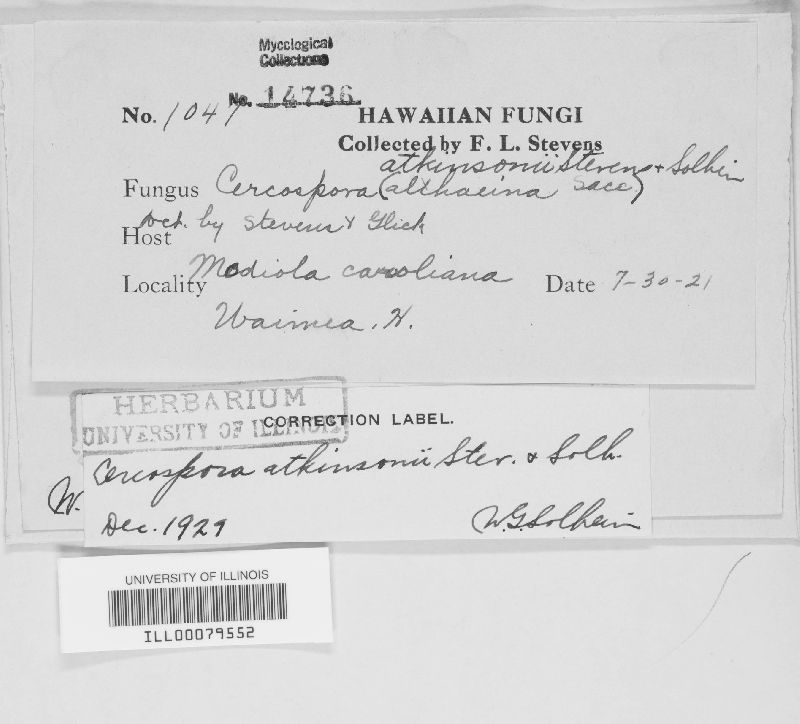 Mycological
Collections
No. 14736
No. 1047
HAWAIIAN FUNGI
Collected by F. L. Stevens
atkinsonii Stevens + Solheim
Fungus Cercospora (althaeina Sacc)
Det. by Stevens & Glick
Host
Modiola caroliana
Locality
Date 7-30-21
Waimea, H.
HERBARIUM
UNIVERSITY OF ILLINOIS
CORRECTION LABEL.
Cercospora atkinsonii Stev. & Solh.
W.
Dec. 1929
W.G. Solheim
UNIVERSITY OF ILLINOIS
ILL00079552